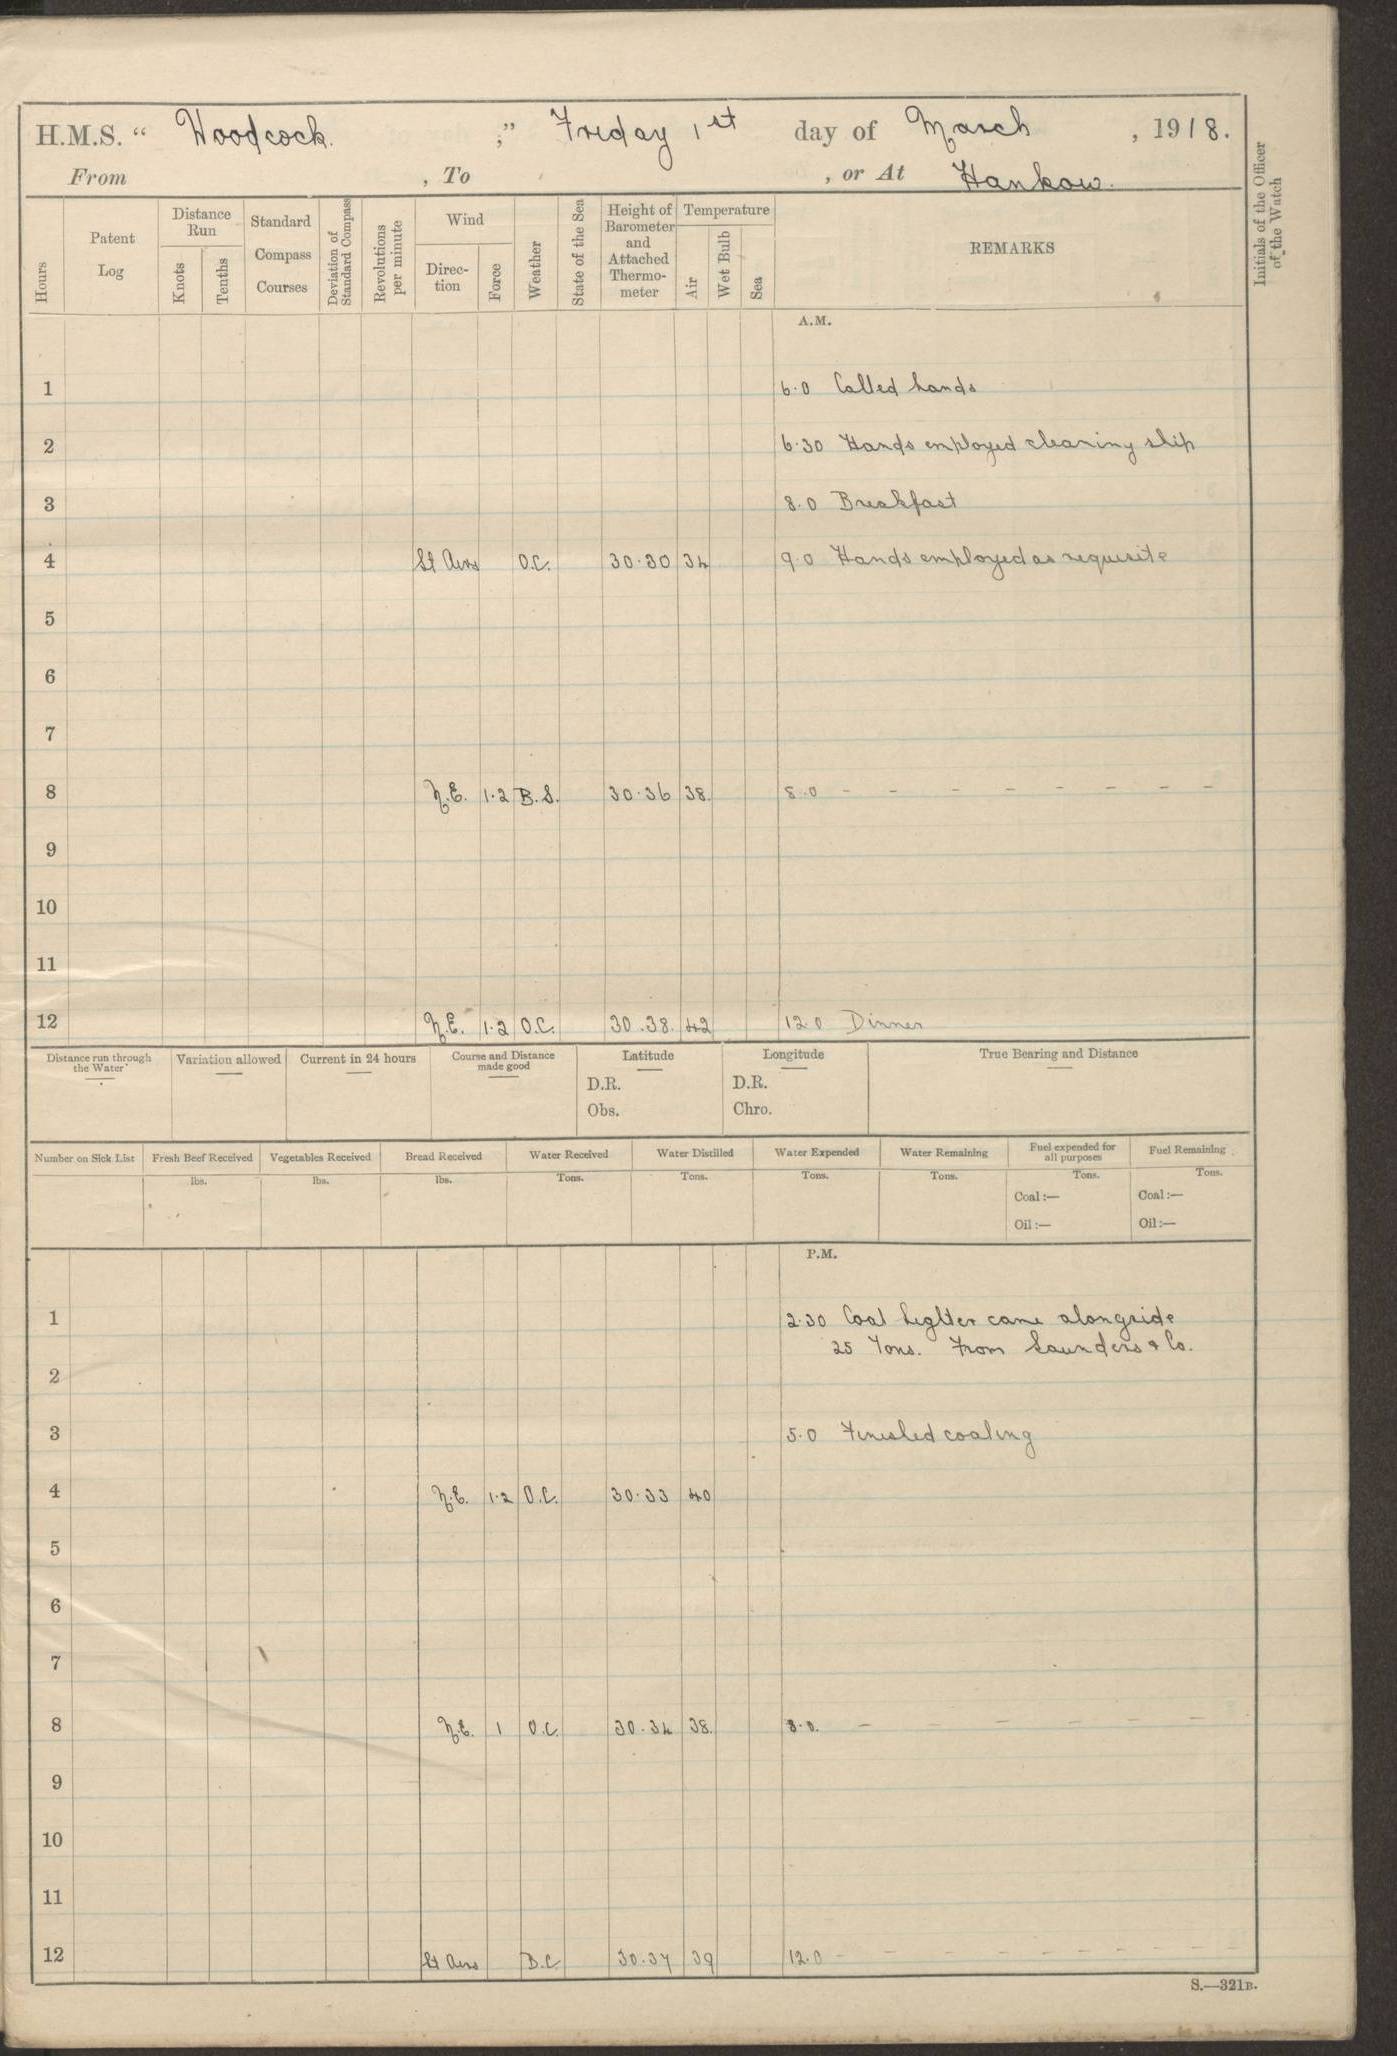 H.M.S. “ Woodcock. ,” Friday 1st day of March , 1918.
From , To , or At Hankow.
Initials of the Officer of the Watch
Hours
Patent Log
Distance Run
Knots
Tenths
Standard Compass Courses
Deviation of Standard Compass
Revolutions per minute
Wind
Direc-tion
Force
Weather
State of the Sea
Height of Barometer and Attached Thermo-meter
Temperature
Air
Wet Bulb
Sea
REMARKS
A.M.
1 6.0 Called hands
2 6.30 Hands employed cleaning ship
3 8.0 Breakfast
4 Lt Airs O.C. 30.30 34 9.0 Hands employed as requisite
5
6
7
8 N.E. 1.2 B.S. 30.36 38. 8.0 - - - - - - - -
9
10
11
12 N.E. 1.2 O.C. 30.38. 42 12.0 Dinner
Distance run through the Water
Variation allowed
Current in 24 hours
Course and Distance made good
Latitude
D.R.
Obs.
Longitude
D.R.
Chro.
True Bearing and Distance
Number on Sick List
Fresh Beef Received
lbs.
Vegetables Received
lbs.
Bread Received
lbs.
Water Received
Tons.
Water Distilled
Tons.
Water Expended
Tons.
Water Remaining
Tons.
Fuel expended for all purposes
Tons.
Coal :—
Oil :—
Fuel Remaining
Tons.
Coal :—
Oil :—
P.M.
1 2.30 Coal Lighter came alongside
25 Tons. From Saunders & Co.
2
3 5.0 Finished coaling
4 N.E. 1.2 O.C. 30.33 40
5
6
7
8 N.E. 1 O.C. 30.34 38. 8.0. - - - - - -
9
10
11
12 Lt Airs B.C. 30.37 39 12.0 - - - - - - - - -
S.—321B.